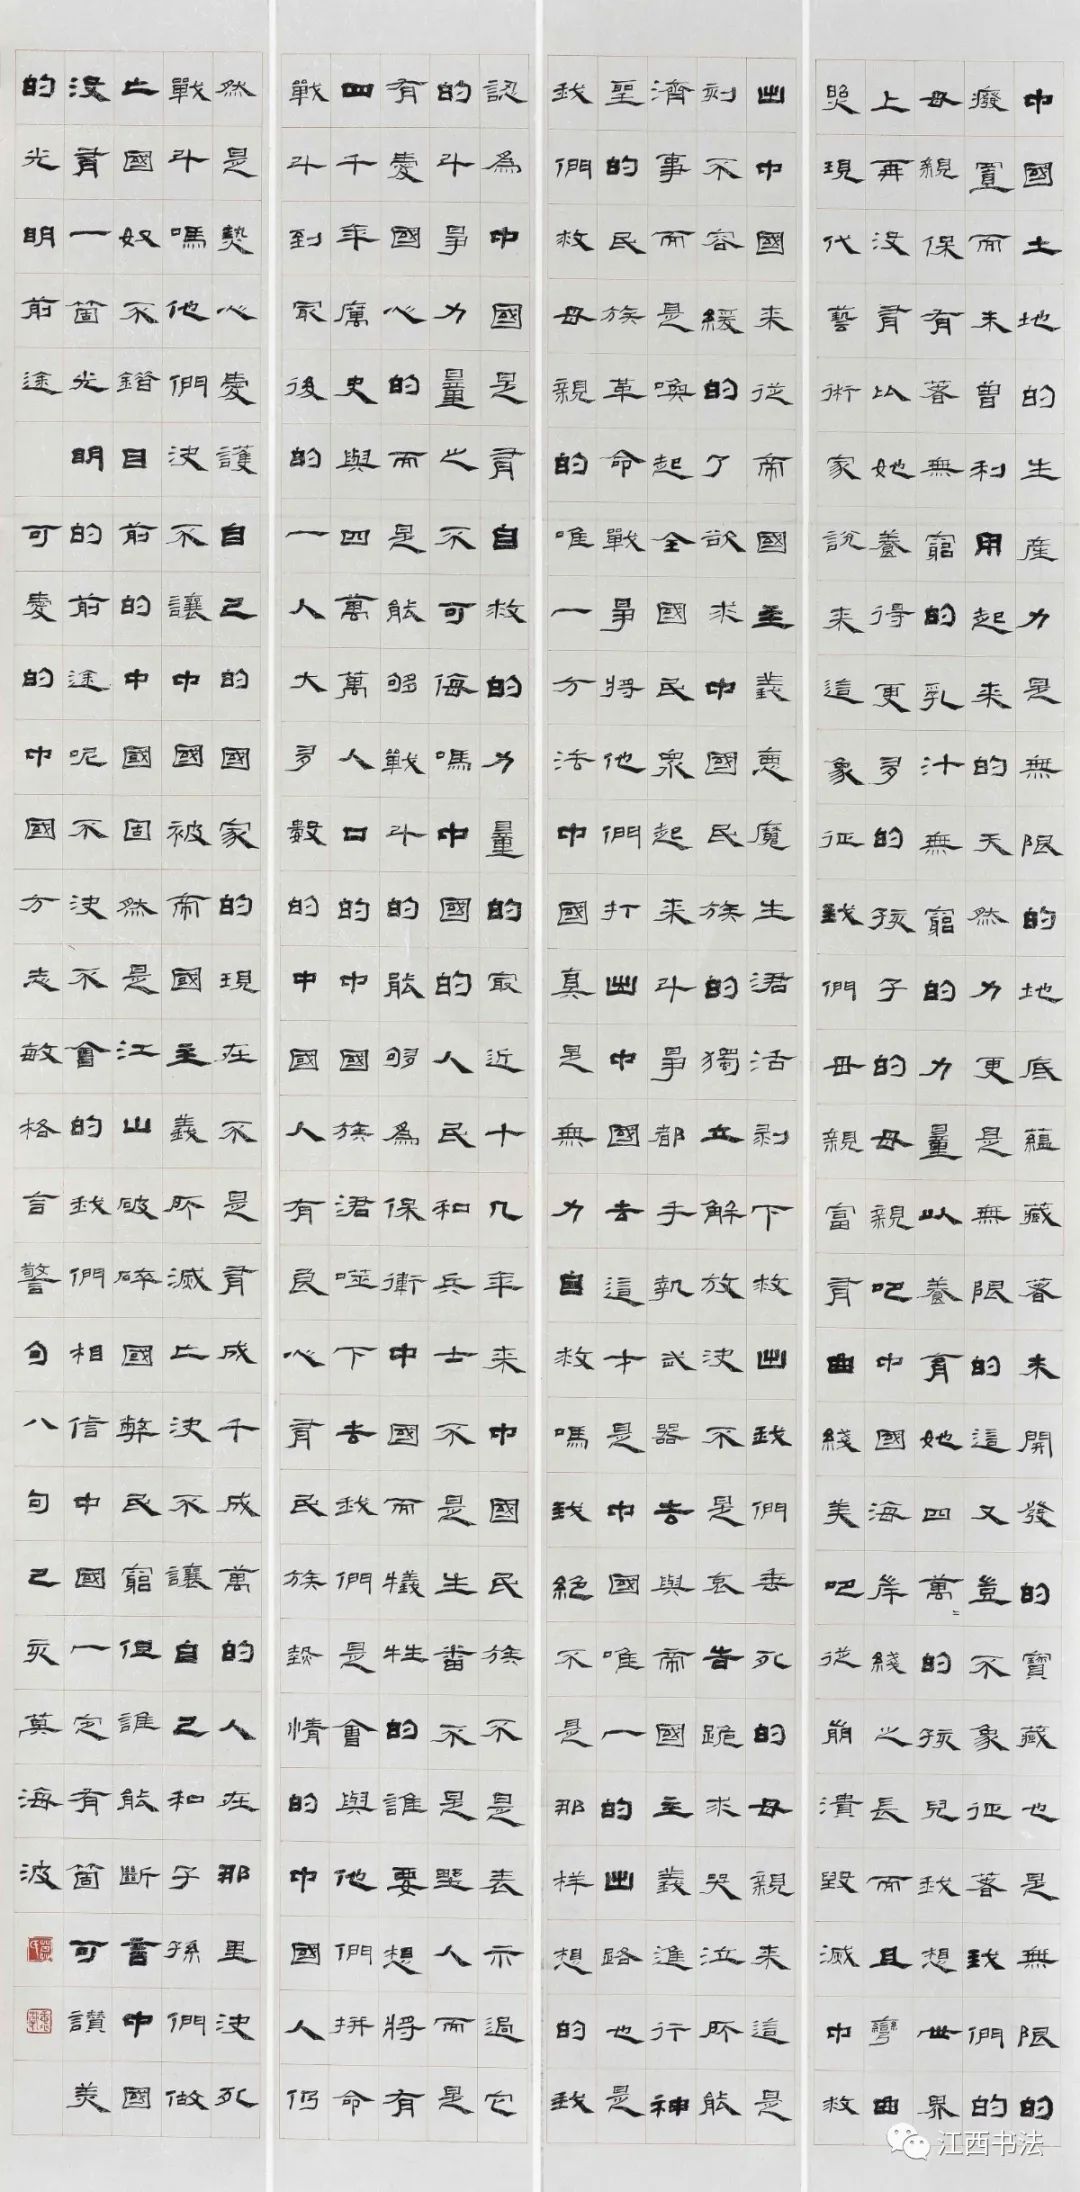 中國土地的生産力是無限的地底蘊藏著未開發的寶藏也是無限的
癈置而未曾利用起來的天然力更是無限的這又豈不象征著我們的
母親保有著無窮的乳汁無窮的力量以養育她四萬的孩兒我想世界
上再沒有比她養得更多的孩子的母親吧中國海岸綫之長而且彎曲
照現代藝術家說來這象征我們母親富有曲綫美吧從崩潰毀滅中救
出中國來從帝國主義惡魔生涒活剥下救出我們垂死的母親來這是
刻不容緩的了欲求中國民族的獨立解放決不是哀告跪求哭泣所能
濟事而是喚起全國民衆起來斗爭都手執武器去與帝國主義進行神
聖的民族革命戰爭將他們打出中國去這才是中國唯一的出路也是
我們救母親的唯一方法中國真是無力自救嗎我絕不是那样想的我
認為中國是有自救的力量的最近十几年來中國民族不是表示過它
的斗爭力量之不可侮嗎中國的人民和兵士不是生番不是野人而是
有愛國心的而是能够戰斗的能够為保衛中國而犧牲的誰要想將有
四千年歷史與四萬萬人口的中國族涒噬下去我們是會與他們拼命
戰斗到最後的一人大多數的中國人有良心有民族熱情的中國人仍
然是熱心愛護自己的國家的現在不是有成千成萬的人在那里決死
戰斗嗎他們決不讓中國被帝國主義所滅亡決不讓自己和子孫們做
亡國奴不錯目前的中國固然是江山破碎國弊民窮但誰能斷言中國
沒有一箇光明的前途呢不決不會的我們相信中國一定有箇可讃美
的光明前途 可愛的中國方志敏格言警句八句己亥莫海波
江西书法